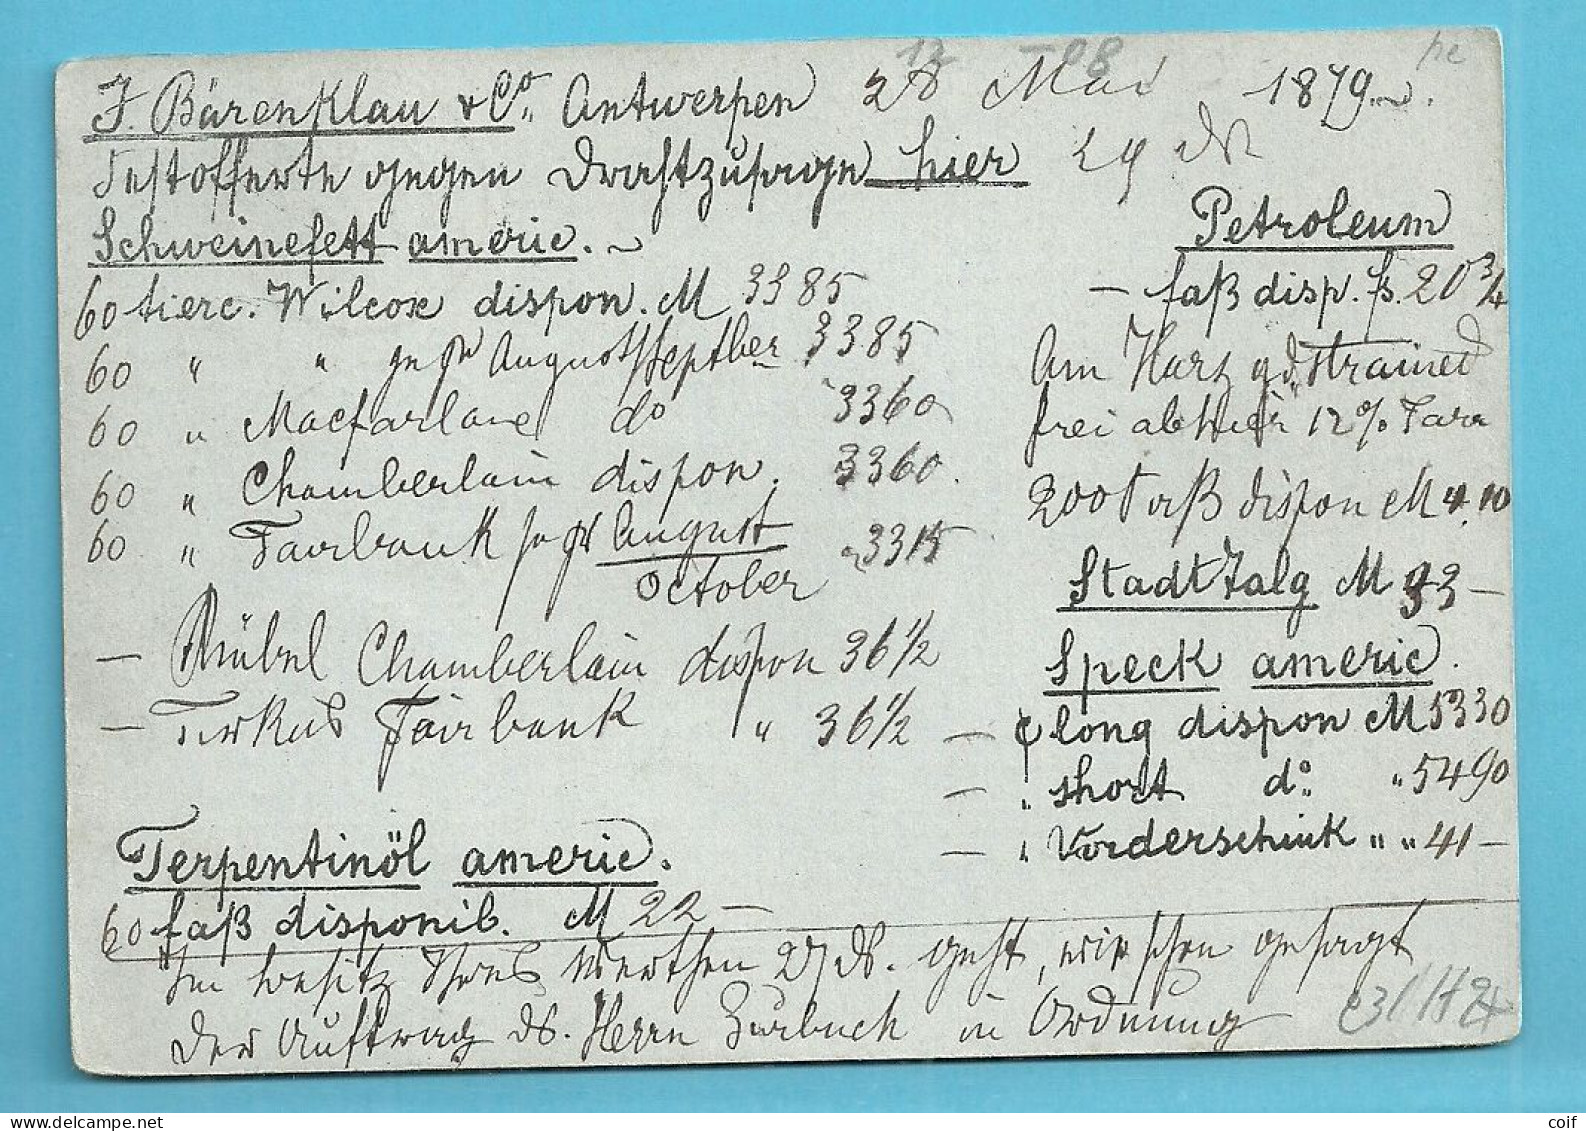 J. Bärenklau & Co. Antwerpen 28 Mai 1879
Festofferte gegen Drahtzusage hier 29 ds
Schweinefett americ.
60 tierc. Wilcox dispon. M 33 85
60 " " August/Septber 33 85
60 " Macfarlane do 33 60
60 " Chamberlain dispon. 33 60
60 " Fairbank August 33 15
October
— Kübel Chamberlain dispon 36 1/2
— Tirkins Fairbank " 36 1/2
Terpentinöl americ.
60 faß disponib. M 22 —
Petroleum
— faß disp. fs. 20 3/4
Am Harz gd. strained
frei ab hier 12% Tara
200 Faß dispon M 4.10
Stadttalg M 93 —
Speck americ.
— long dispon M 53 30
— " short do. " 54 90
— " Vorderschink " " 41 —
Im besitz Ihres Werthen 27 ds. geht, wie schon gesagt
der Auftrag ds. Herrn Zurbuch in Ordnung
12 08